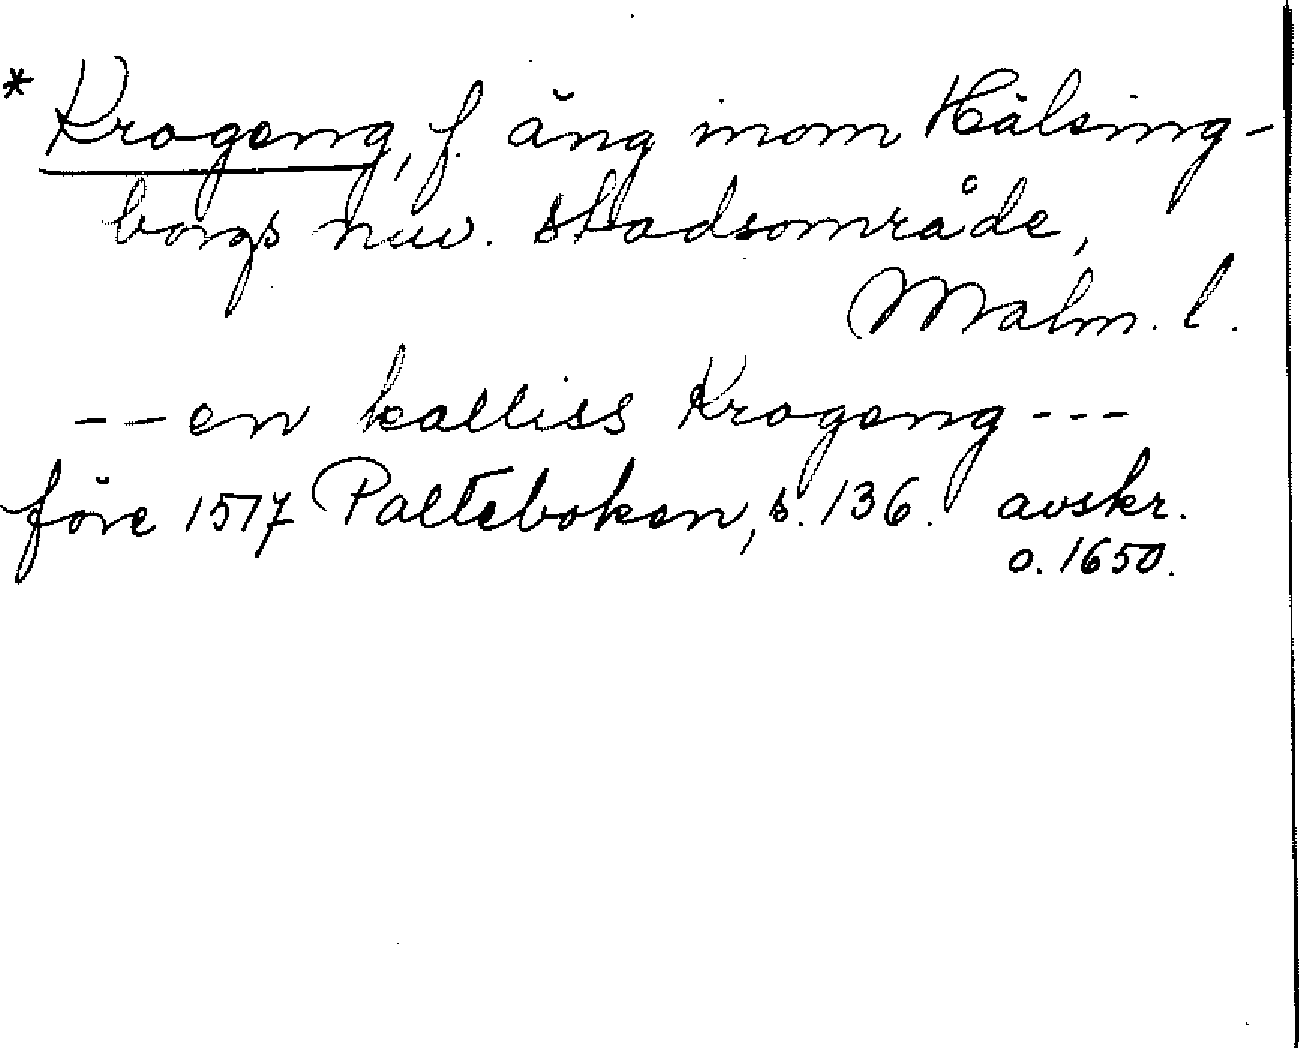 * Krogeng, f. äng inom Hälsing-
borgs nuv. stadsområde,
Malm. l.
-- en kalliss Krogeng ---
före 1517 Palteboken, s. 136. avskr.
o. 1650.